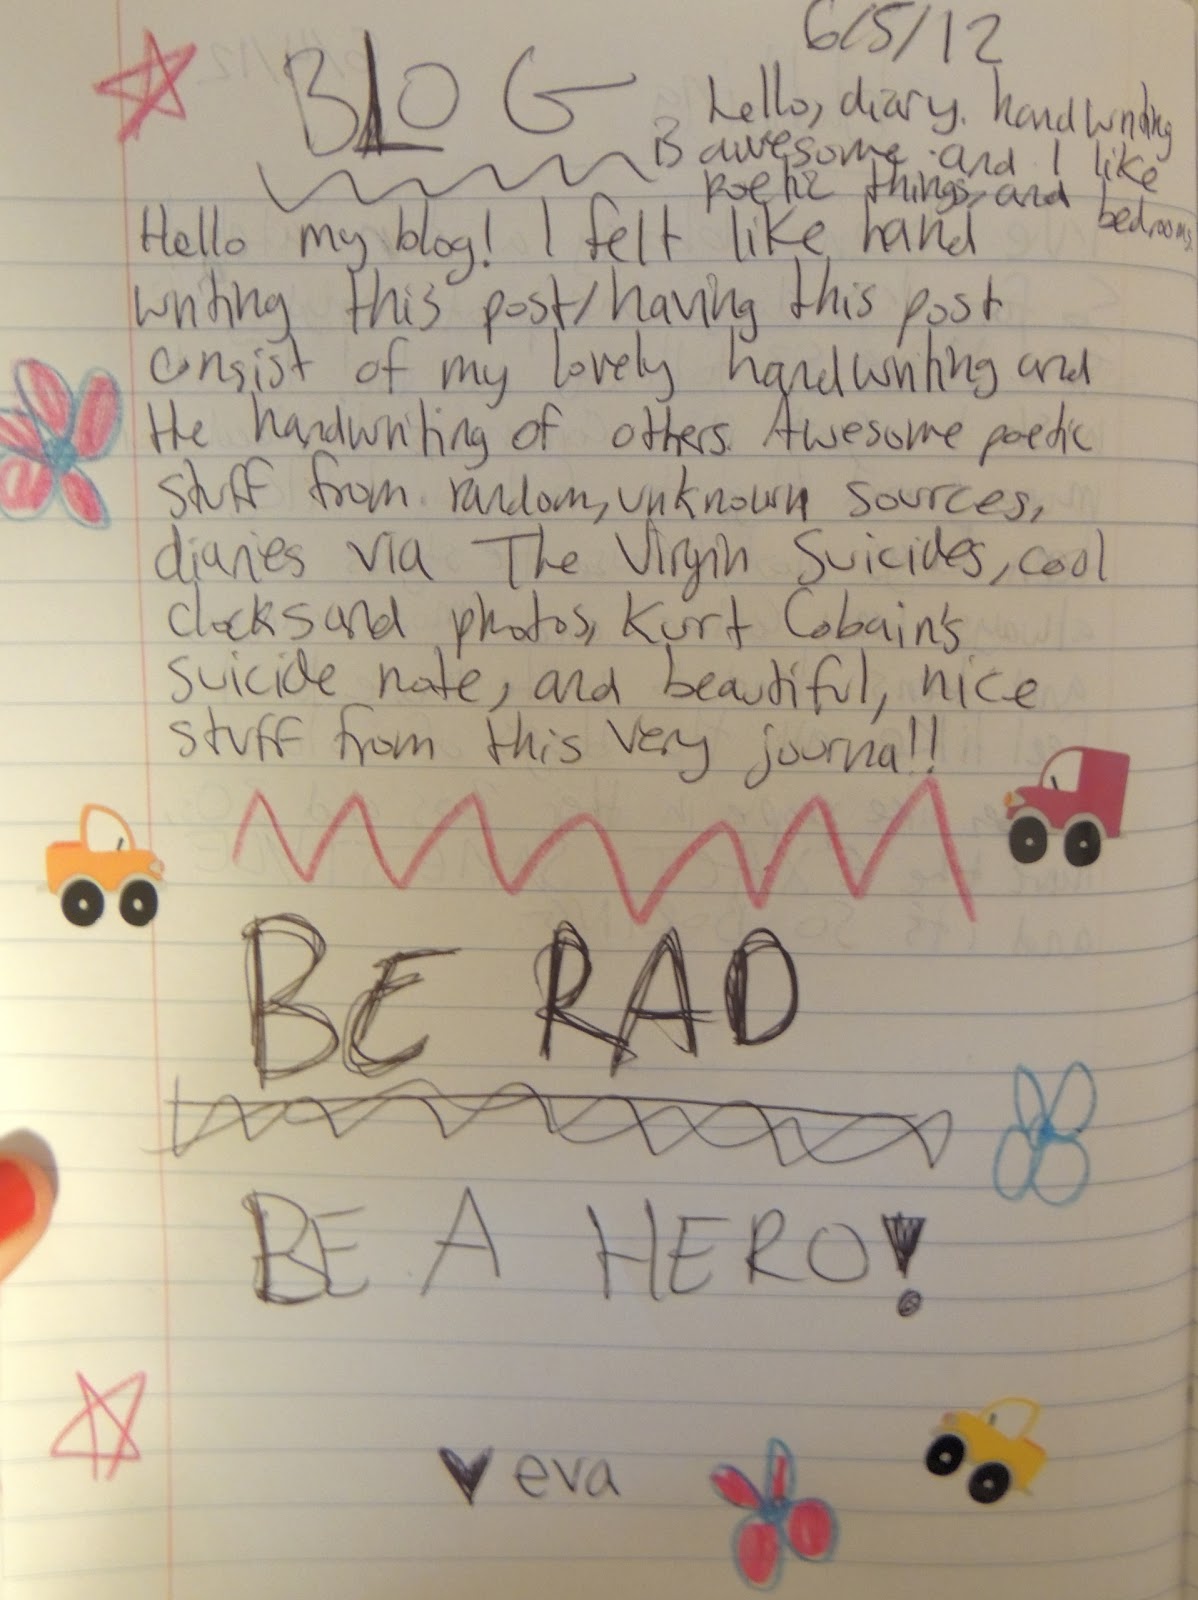 6/5/12
BLOG
hello, diary. handwriting
is awesome and I like
poetic things, and bedrooms
Hello my blog! I felt like hand
writing this post/having this post
consist of my lovely handwriting and
the handwriting of others. Awesome poetic
stuff from random, unknown sources,
diaries via The Virgin Suicides, cool
clocks and photos, Kurt Cobain's
suicide note, and beautiful, nice
stuff from this very journal!!
BE RAD
BE A HERO!
♥ eva